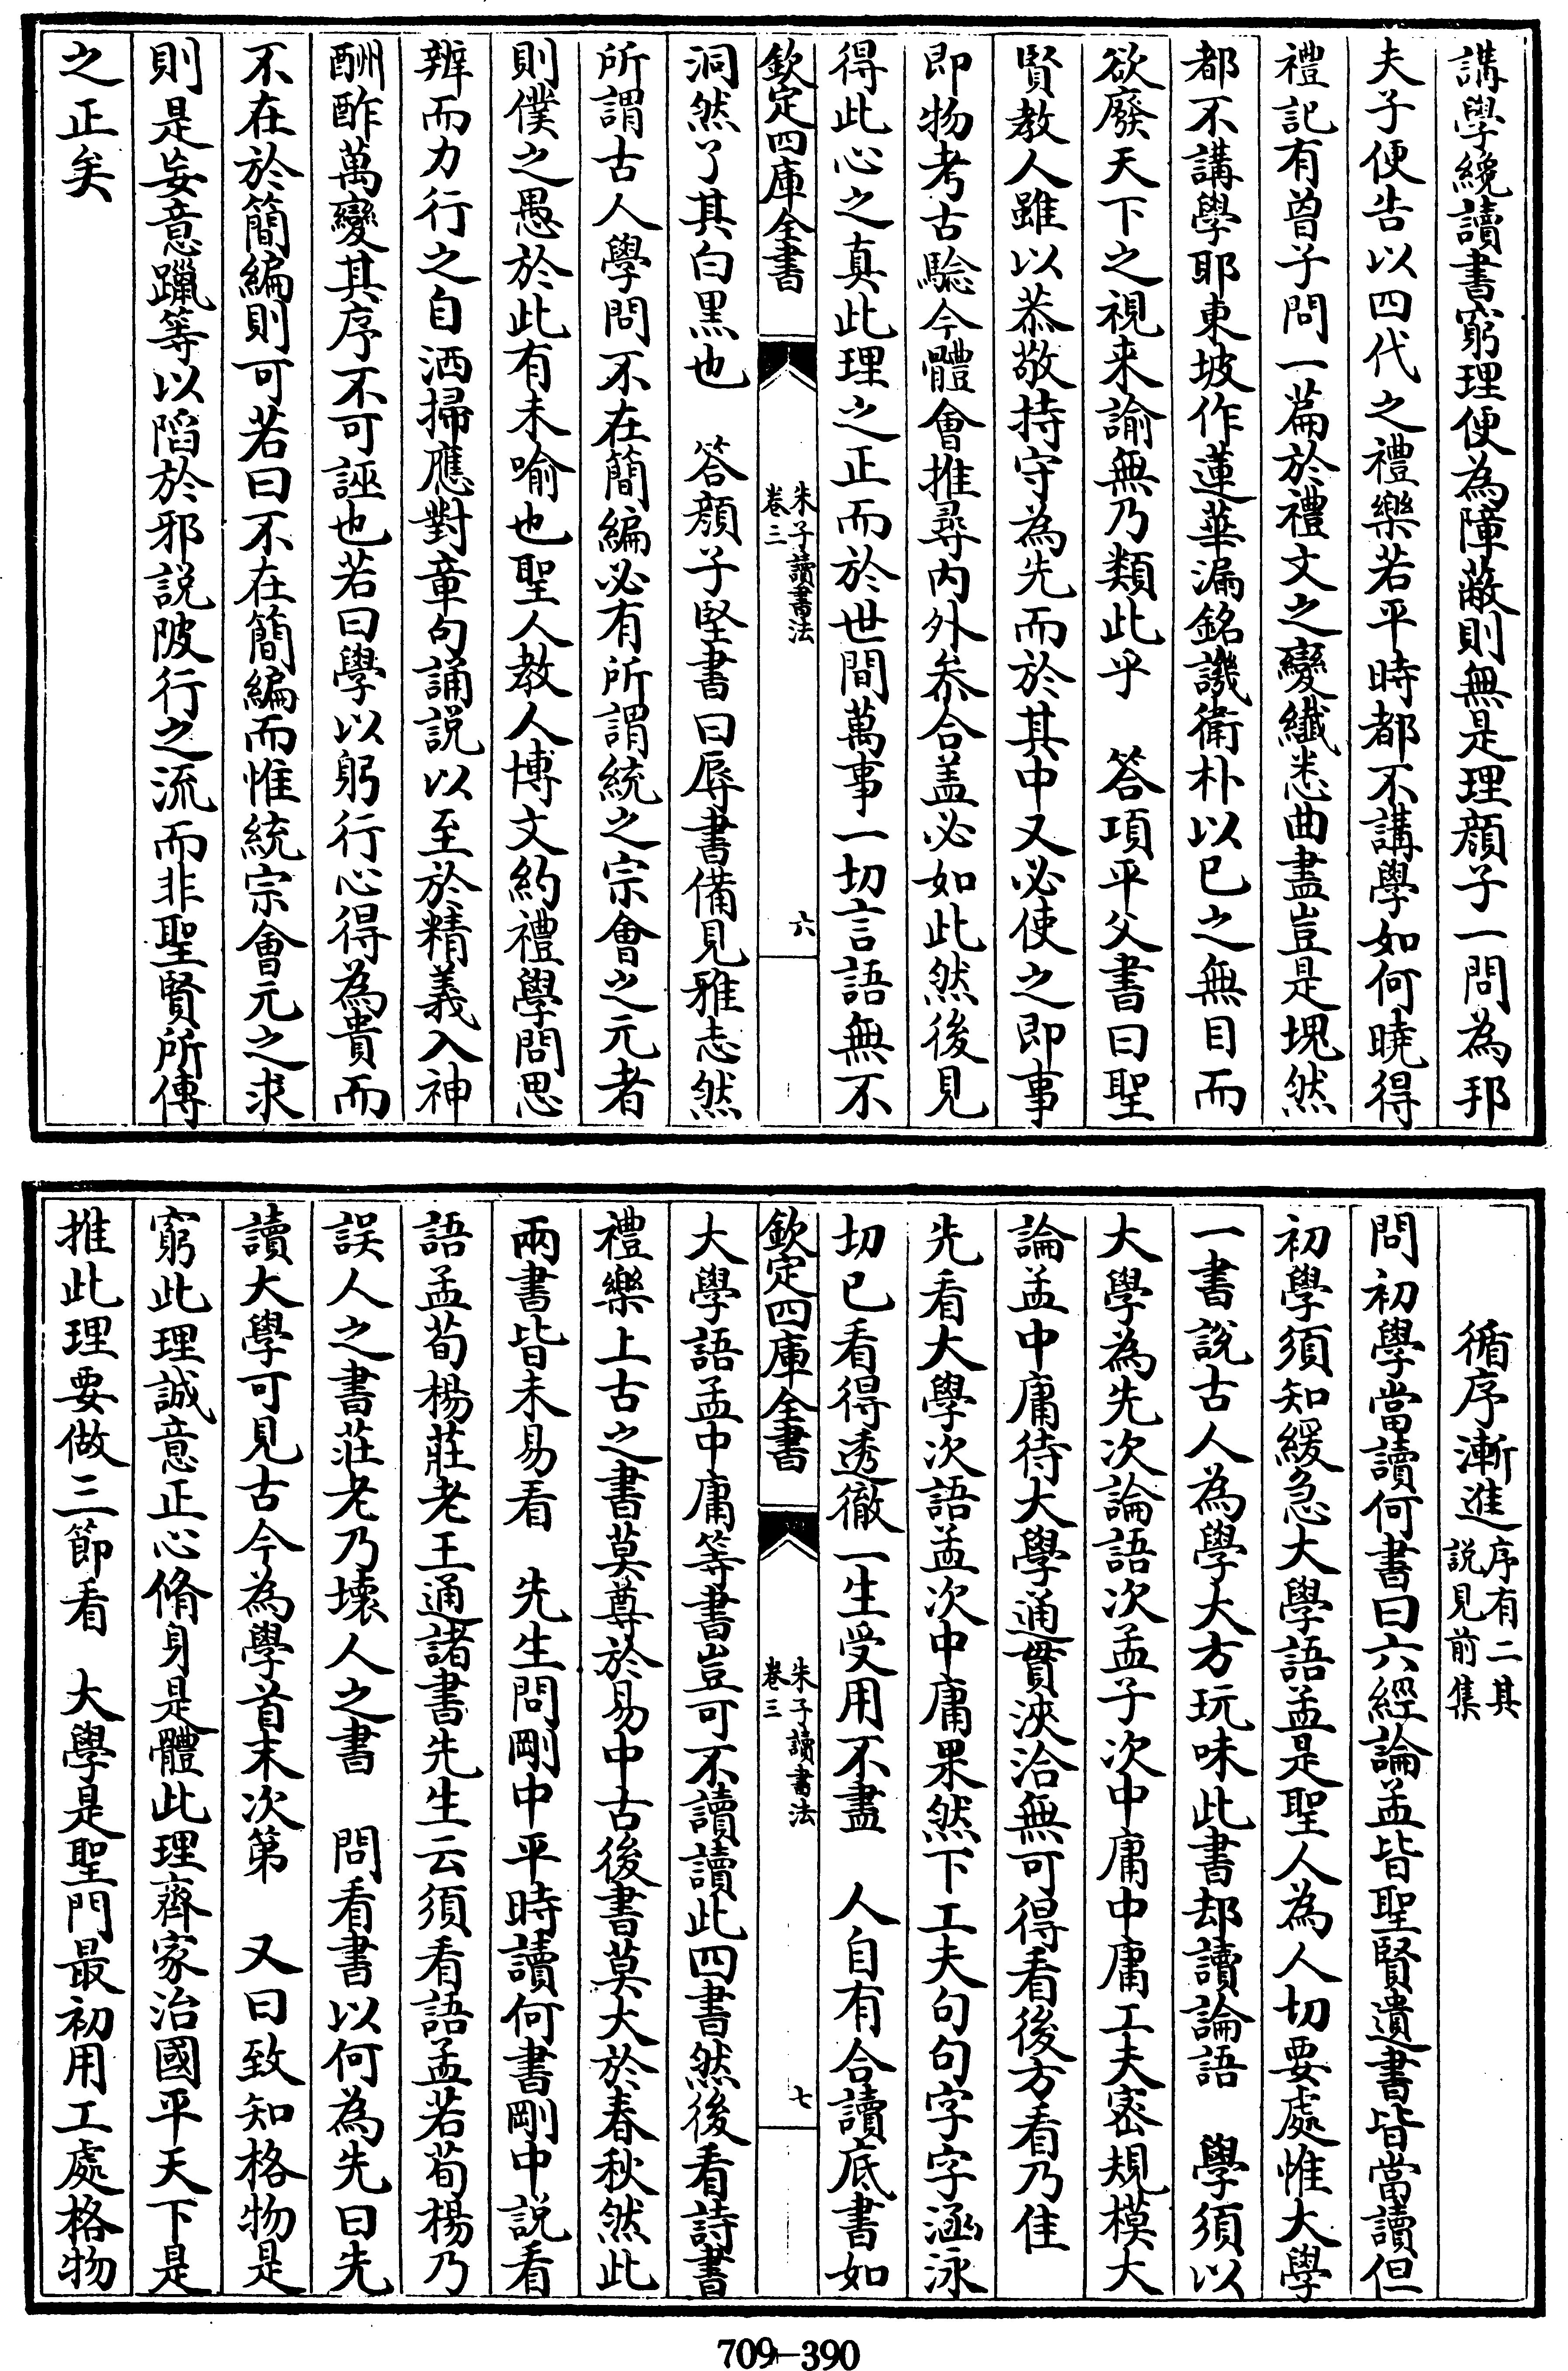 講學纔讀書窮理便為障蔽則無是理顔子一問為邦
夫子便告以四代之禮樂若平時都不講學如何曉得
禮記有曽子問一篇於禮文之變纎悉曲盡豈是塊然
都不講學耶東坡作蓮華漏銘譏衛朴以已之無目而
欲廢天下之視来諭無乃類此乎　答項平父書曰聖
賢教人雖以恭敬持守為先而於其中又必使之即事
即物考古驗今體會推尋内外叅合盖必如此然後見
得此心之真此理之正而於世間萬事一切言語無不
欽定四庫全書
朱子讀書法
卷三
六
洞然了其白黒也　答顔子堅書曰辱書備見雅志然
所謂古人學問不在簡編必有所謂統之宗會之元者
則僕之愚於此有未喻也聖人教人博文約禮學問思
辨而力行之自洒掃應對章句誦説以至於精義入神
酬酢萬變其序不可誣也若曰學以躬行心得為貴而
不在於簡編則可若曰不在簡編而惟統宗會元之求
則是妄意躐等以陷於邪説陂行之流而非聖賢所傳
之正矣
循序漸進序有二其
説見前集
問初學當讀何書曰六經論孟皆聖賢遺書皆當讀但
初學須知緩急大學語孟是聖人為人切要處惟大學
一書説古人為學大方玩味此書却讀論語　學須以
大學為先次論語次孟子次中庸中庸工夫宻規模大
論孟中庸待大學通貫浹洽無可得看後方看乃佳
先看大學次語孟次中庸果然下工夫句句字字涵泳
切已看得透徹一生受用不盡　人自有合讀底書如
欽定四庫全書
朱子讀書法
卷三
七
大學語孟中庸等書豈可不讀讀此四書然後看詩書
禮樂上古之書莫尊於易中古後書莫大於春秋然此
兩書皆未易看　先生問剛中平時讀何書剛中説看
語孟荀楊莊老王通諸書先生云須看語孟若荀楊乃
誤人之書莊老乃壊人之書　問看書以何為先曰先
讀大學可見古今為學首末次第　又曰致知格物是
窮此理誠意正心脩身是體此理齊家治國平天下是
推此理要做三節看　大學是聖門最初用工處格物
709-390